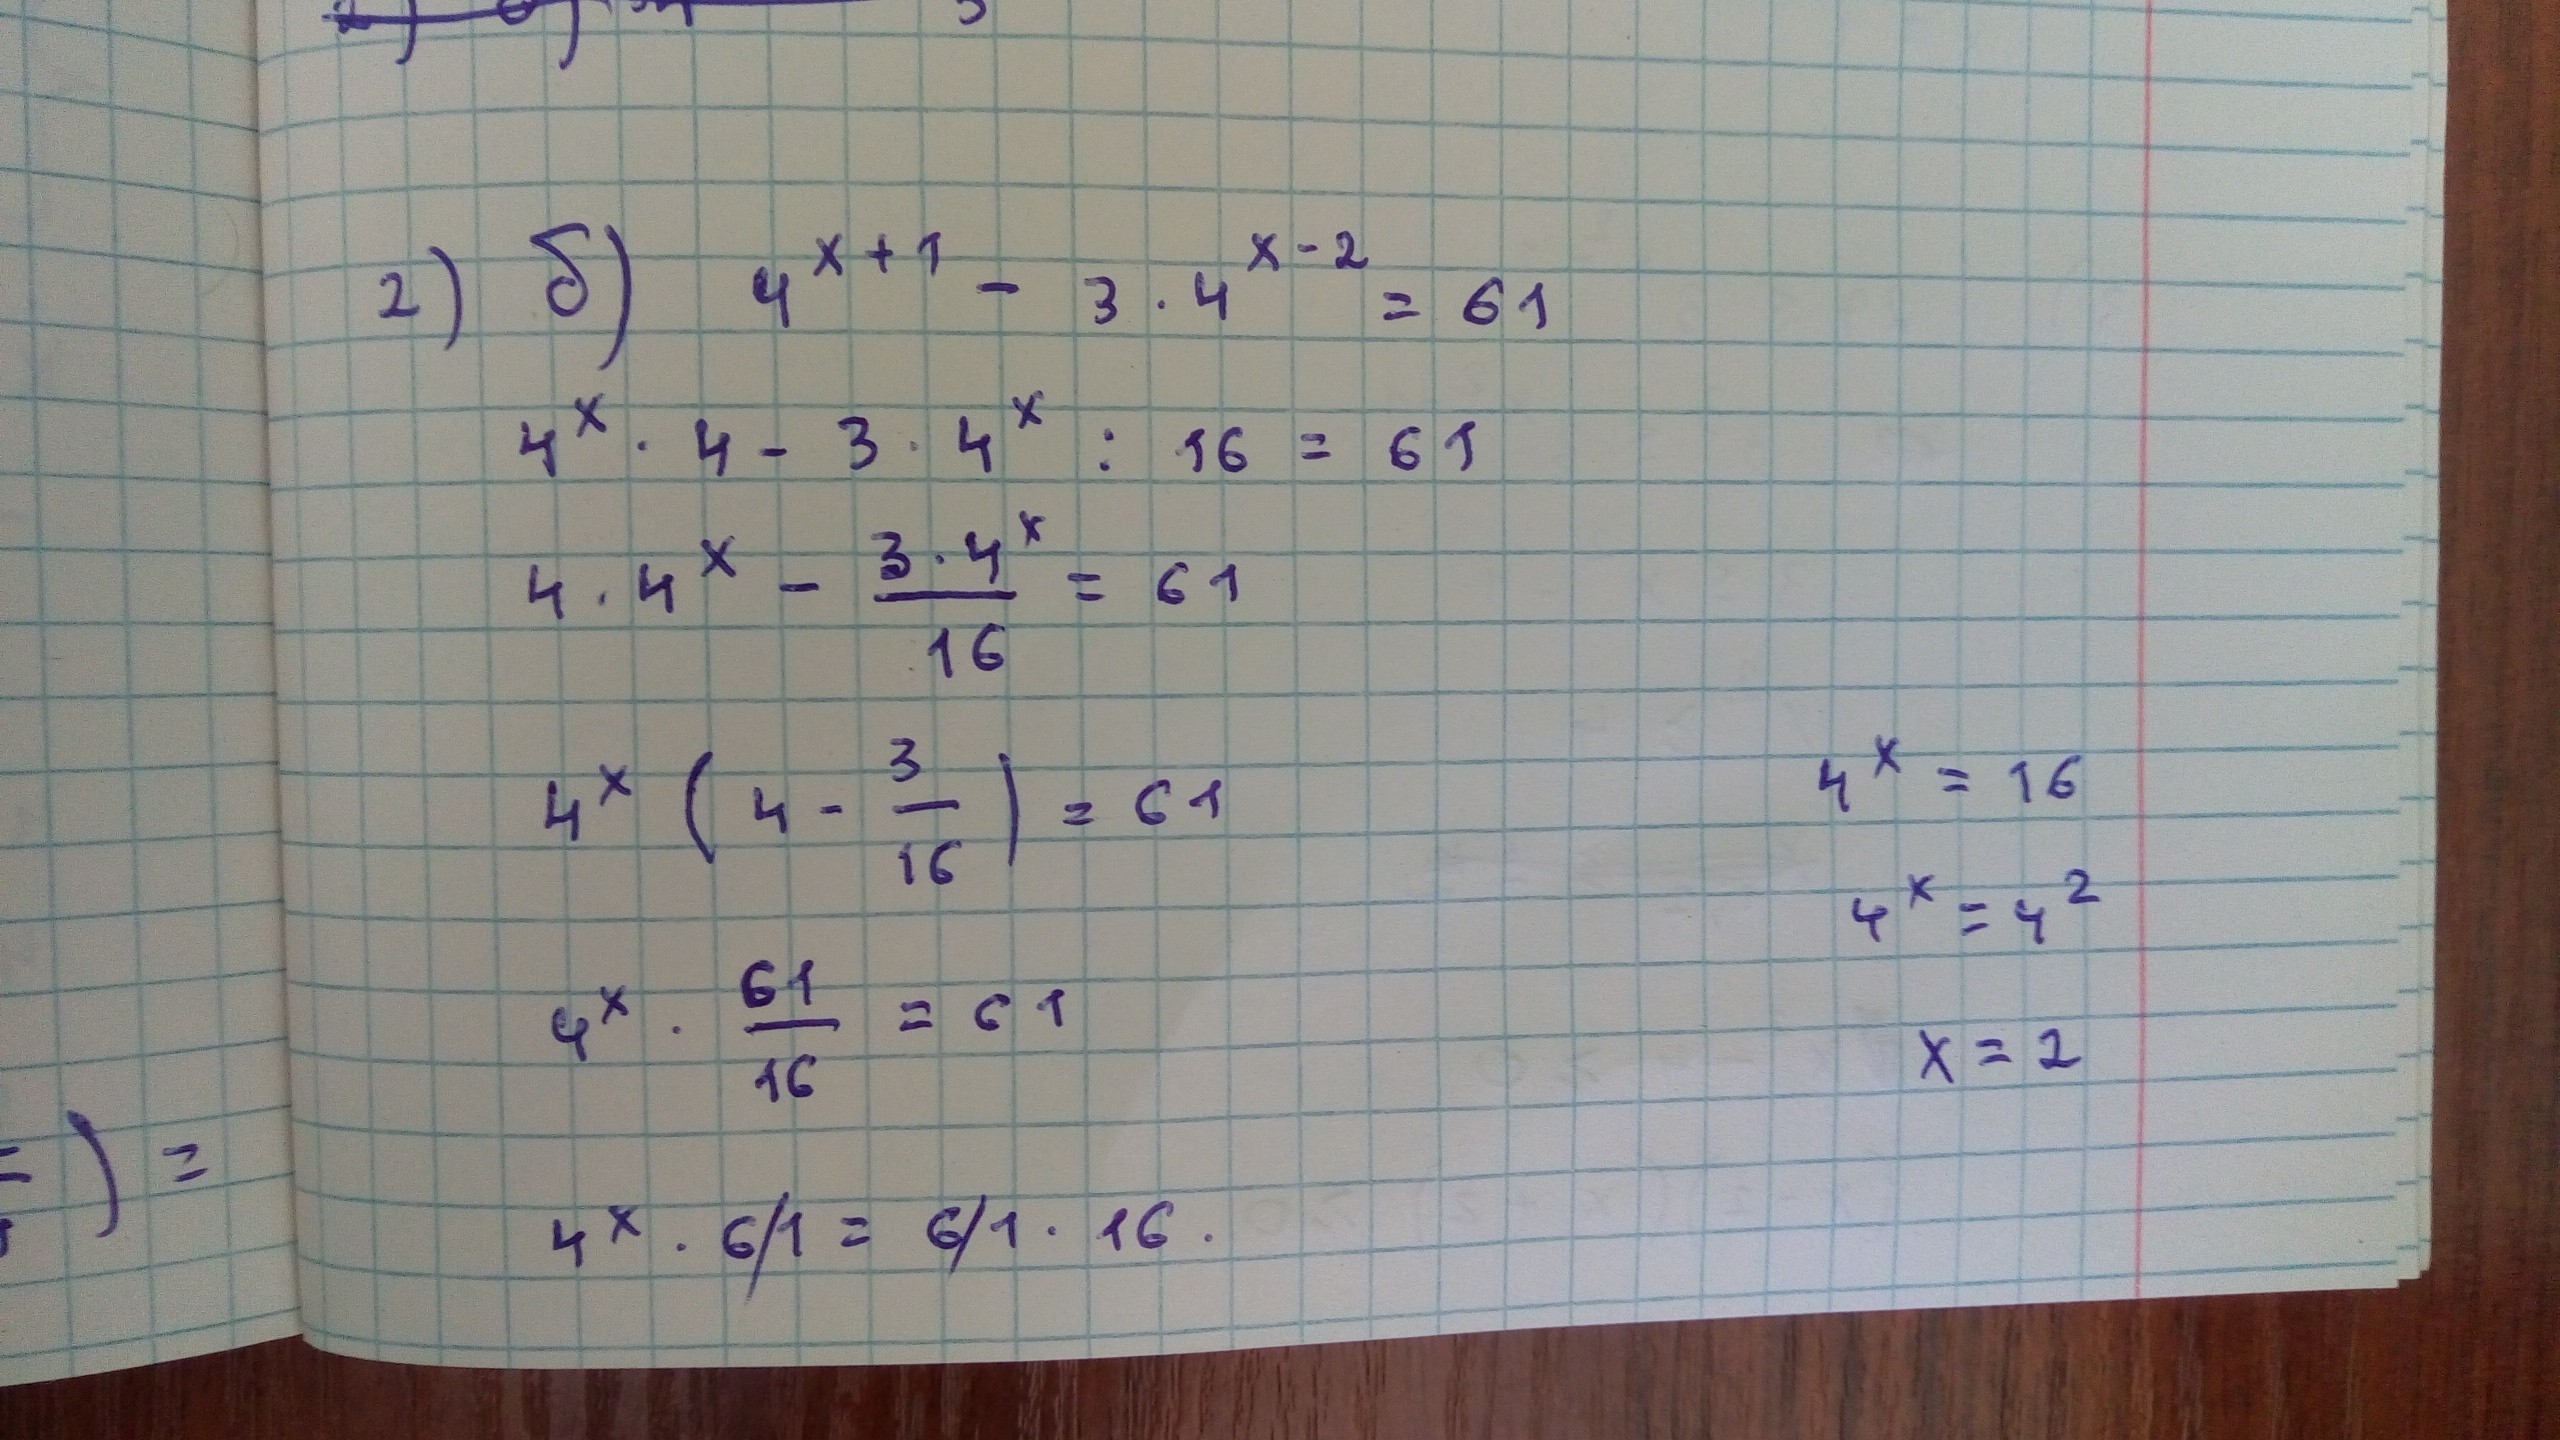 2) б) 4^{x+1} - 3 · 4^{x-2} = 61
4^x · 4 - 3 · 4^x : 16 = 61
4 · 4^x - \frac{3 · 4^x}{16} = 61
4^x (4 - \frac{3}{16}) = 61
4^x · \frac{61}{16} = 61
4^x · 61 = 61 · 16.
4^x = 16
4^x = 4^2
x = 2
) =